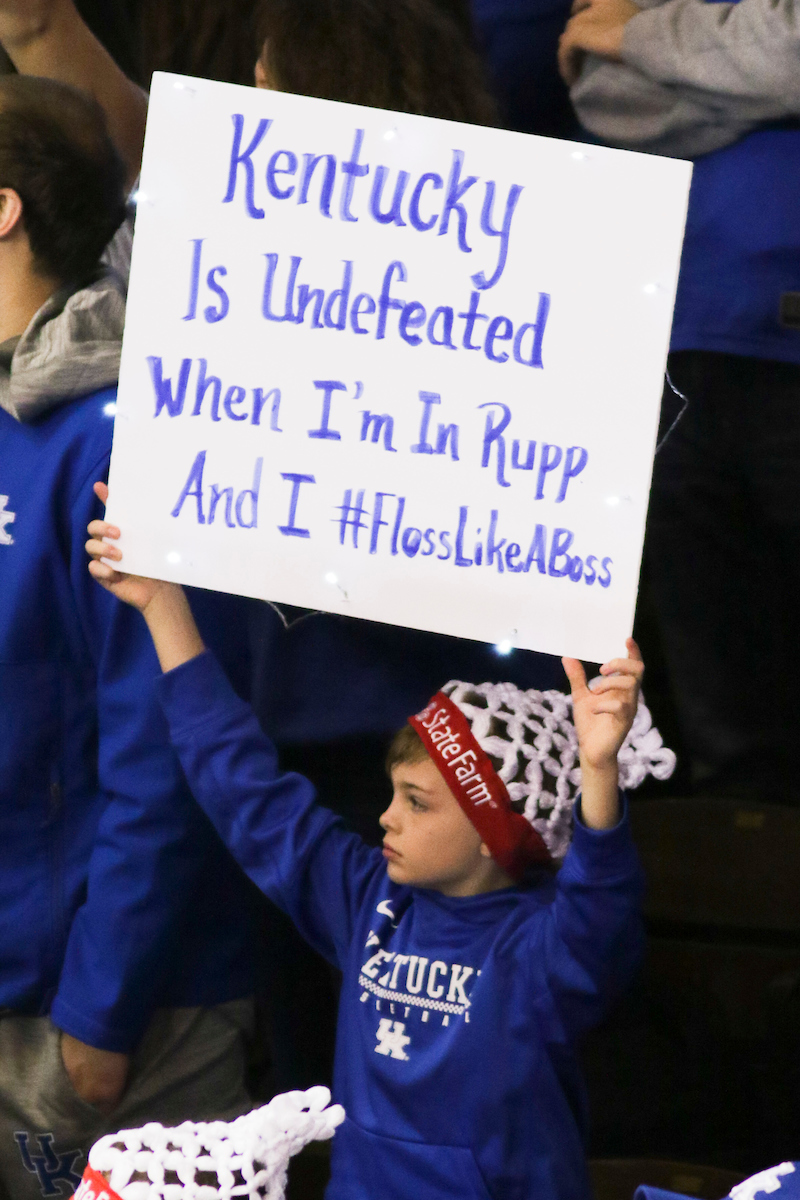 Kentucky
Is Undefeated
When I'm In Rupp
And I #FlossLikeABoss
StateFarm®
KENTUCKY
UK
UK